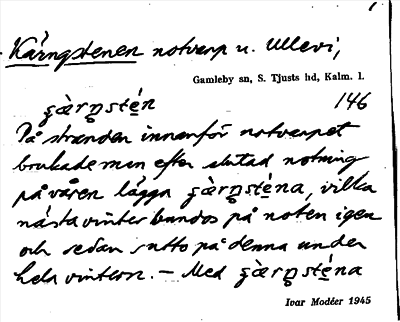 Kärngstenen notvarp u. Ullevi,
Gamleby sn, S. Tjusts hd, Kalm. l.
146
På stranden innanför notvarpet
brukade men efter slutad notning
på våren lägga, vilka
nästa vinter bandos på noten igen
och sedan sutto på denna under
hela vintern. – Med
Ivar Modéer 1945